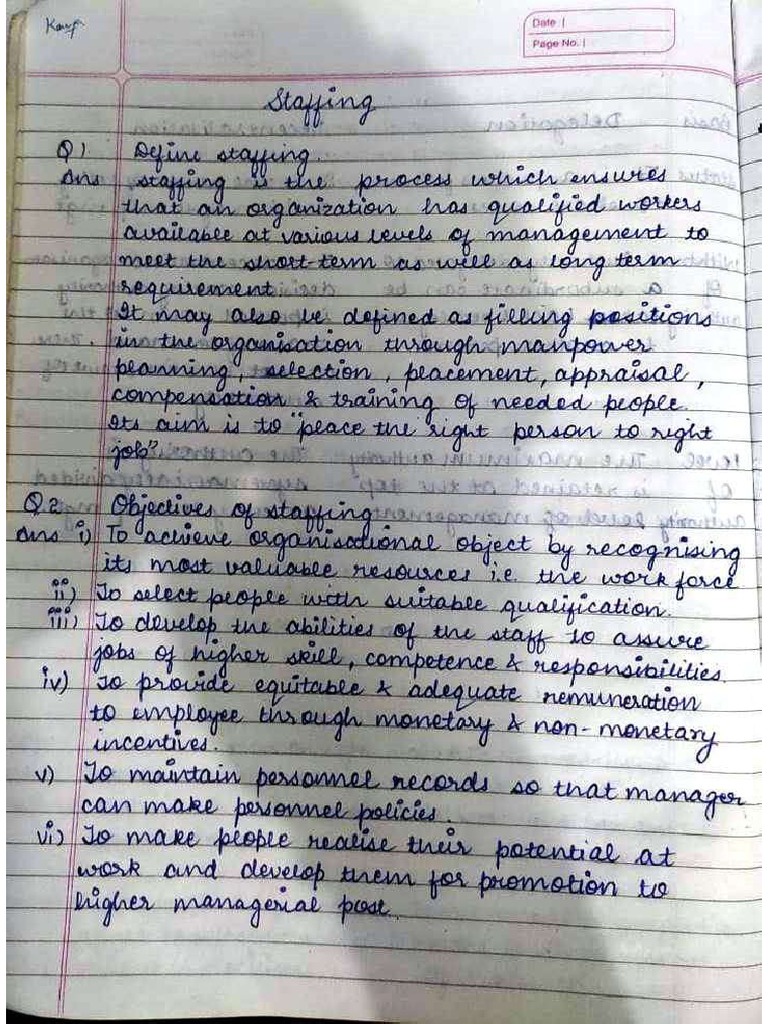 Date |
Page No. |
Staffing
Q1 Define staffing.
Ans staffing is the process which ensures
that an organization has qualified workers
available at various levels of management to
meet the short-term as well as long term
requirement
It may also be defined as filling positions
in the organisation through manpower
planning, selection, placement, appraisal,
compensation & training of needed people.
Its aim is to "peace the right person to right
job".
Q2 Objectives of staffing
Ans i) To achieve organisational object by recognising
its most valuable resources i.e. the work force
ii) To select people with suitable qualification.
iii) To develop the abilities of the staff to assure
jobs of higher skill, competence & responsibilities.
iv) To provide equitable & adequate remuneration
to employee through monetary & non-monetary
incentives.
v) To maintain personnel records so that manager
can make personnel policies.
vi) To make people realise their potential at
work and develop them for promotion to
higher managerial post.